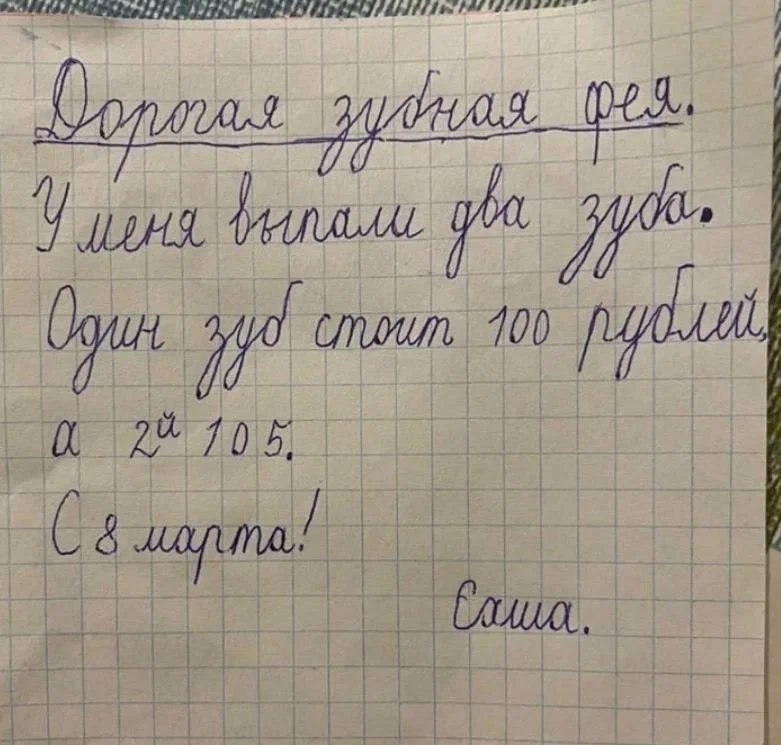 Дорогая зубная фея.
У меня выпали два зуба.
Один зуб стоит 100 рублей,
а 2й 105.
С 8 марта!
Саша.